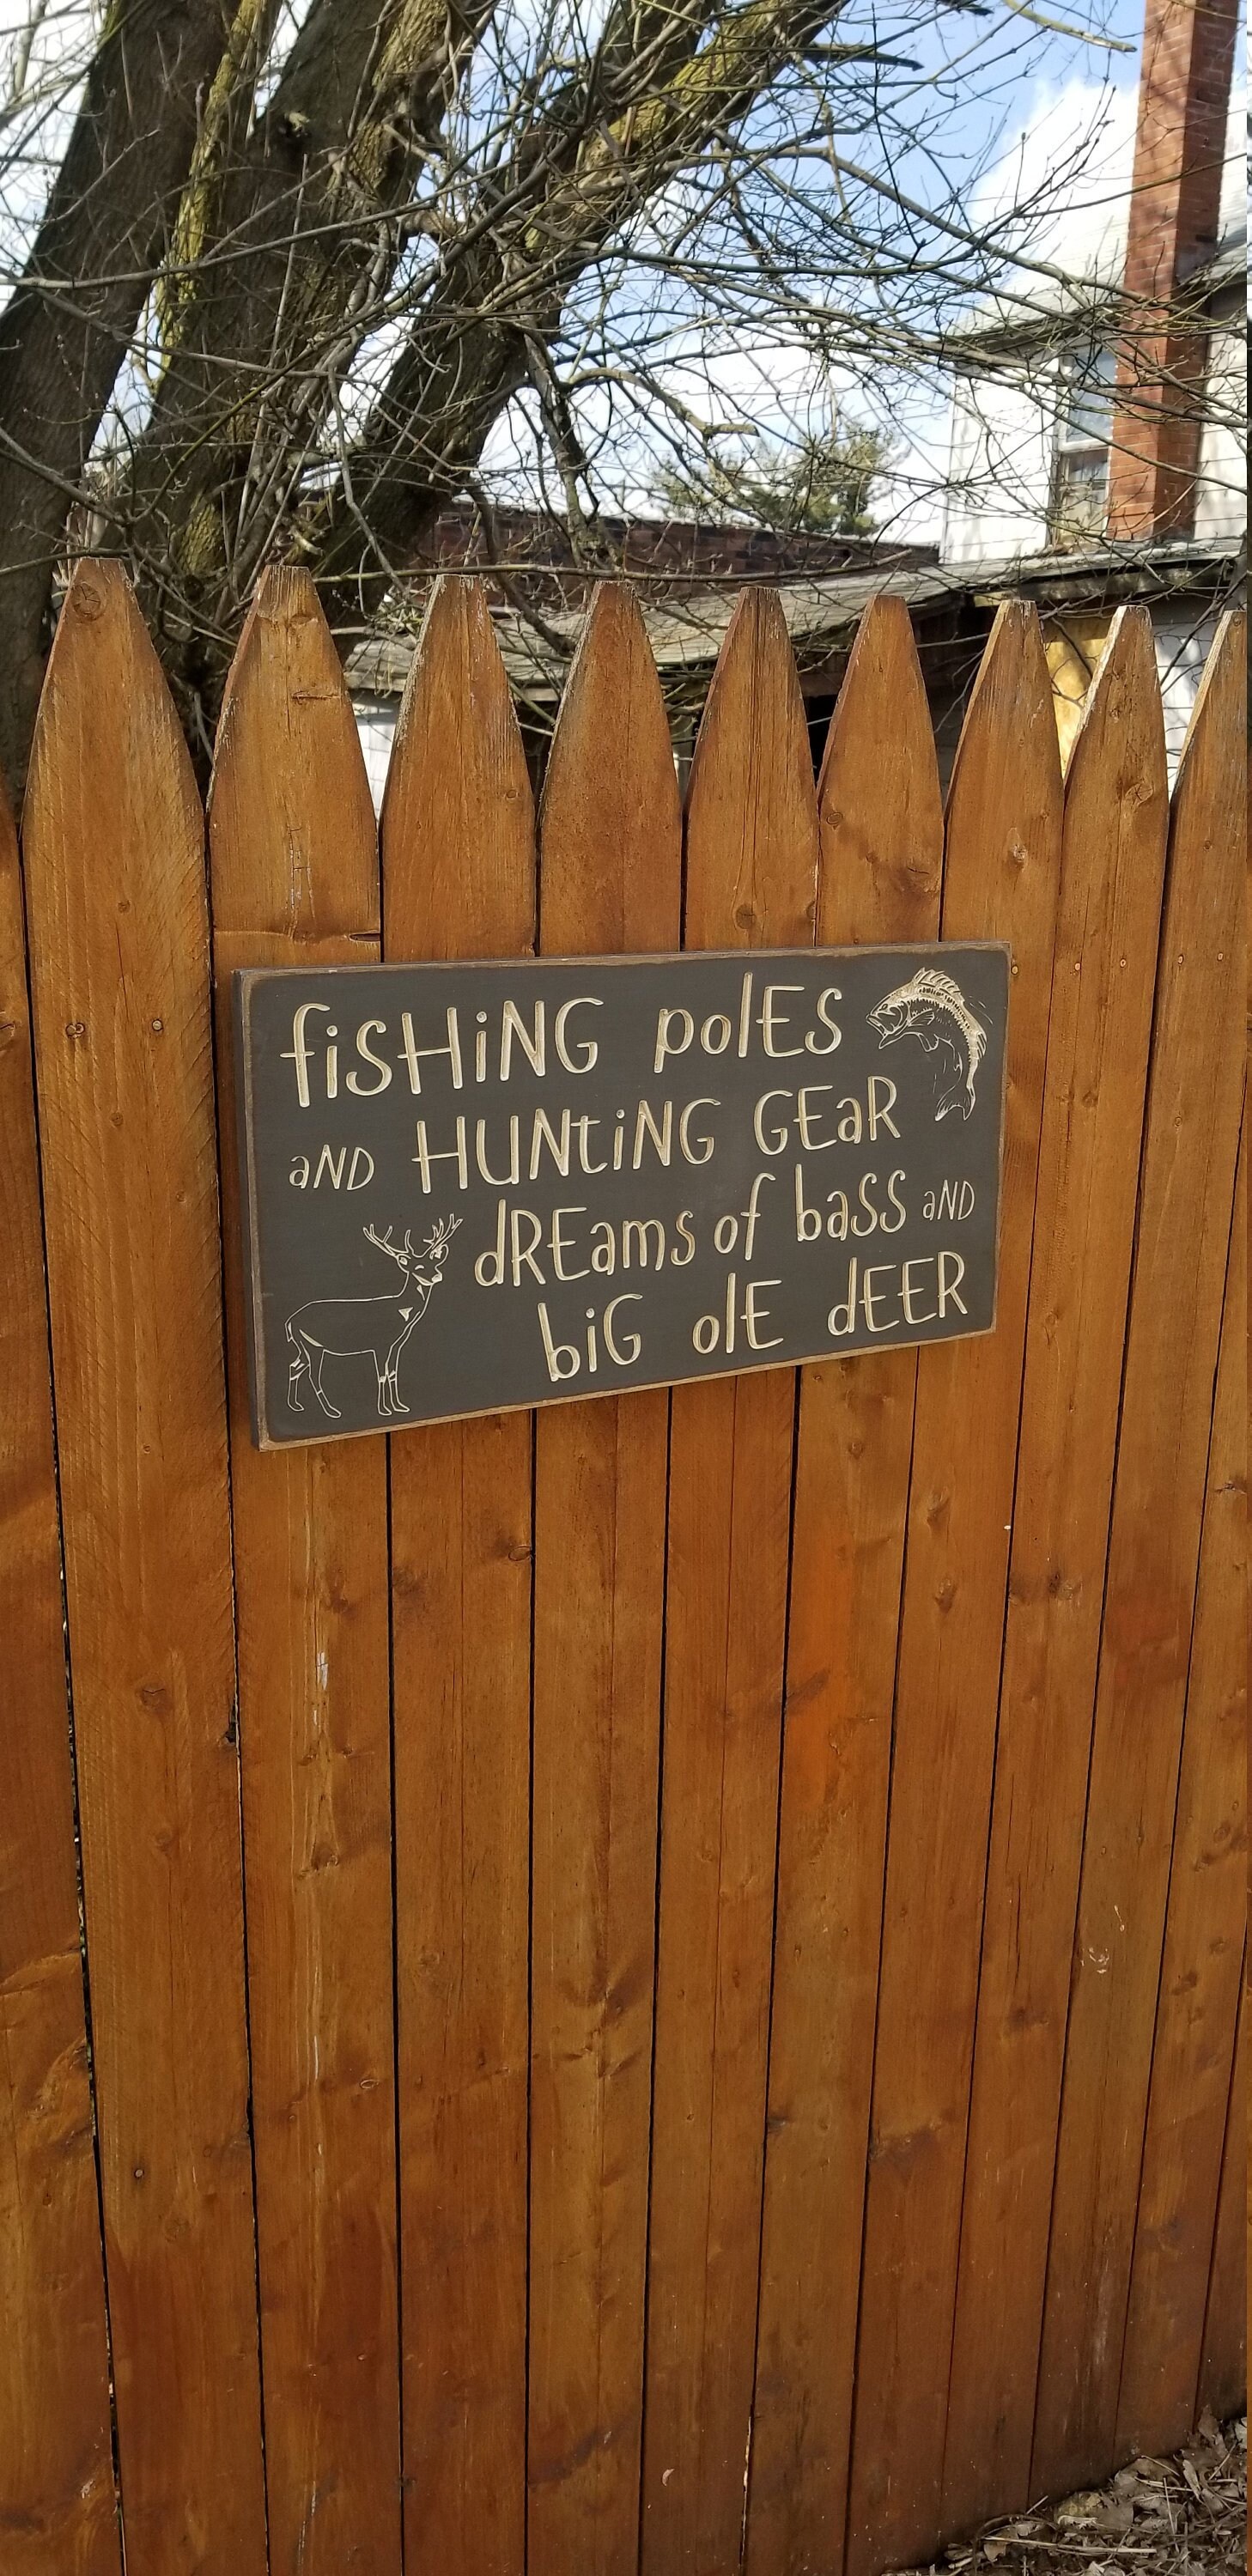 fiSHiNG polES
aND HUNtiNG GEaR
dREamS of baSS aND
biG olE dEER